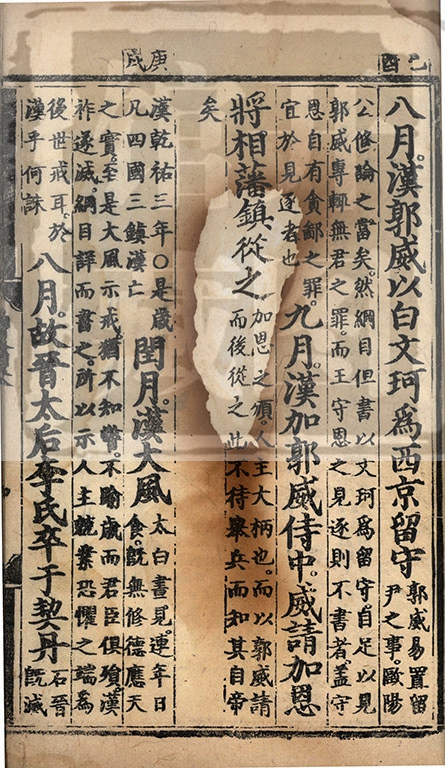 己酉
八月。漢郭威以白文珂爲西京留守
郭威易置留
尹之事。歐陽
公修論之當矣。然綱目但書以文珂爲留守。自足以見
郭威專輒無君之罪。而王守恩之見逐則不書者。盖守
恩自有貪鄙之罪。
宜於見逐者也
九月。漢加郭威侍中。威請加恩
將相藩鎮從之
加恩之頒。人主大柄也。而以郭威請
而後從之。此不待舉兵而知其自帝
矣
庚戌
漢乾祐三年○是歲
凡四國三鎮漢亡
閏月。漢大風
太白晝見。連年日
食。旣無修德應天
之實。至是大風示戒。猶不知警。不踰歲而君臣俱殞。漢
祚遂滅。綱目詳而書之。所以示人主兢業恐懼之端爲
後世戒耳。於
漢乎何誅
八月。故晉太后李氏卒于契丹
石晉
旣滅